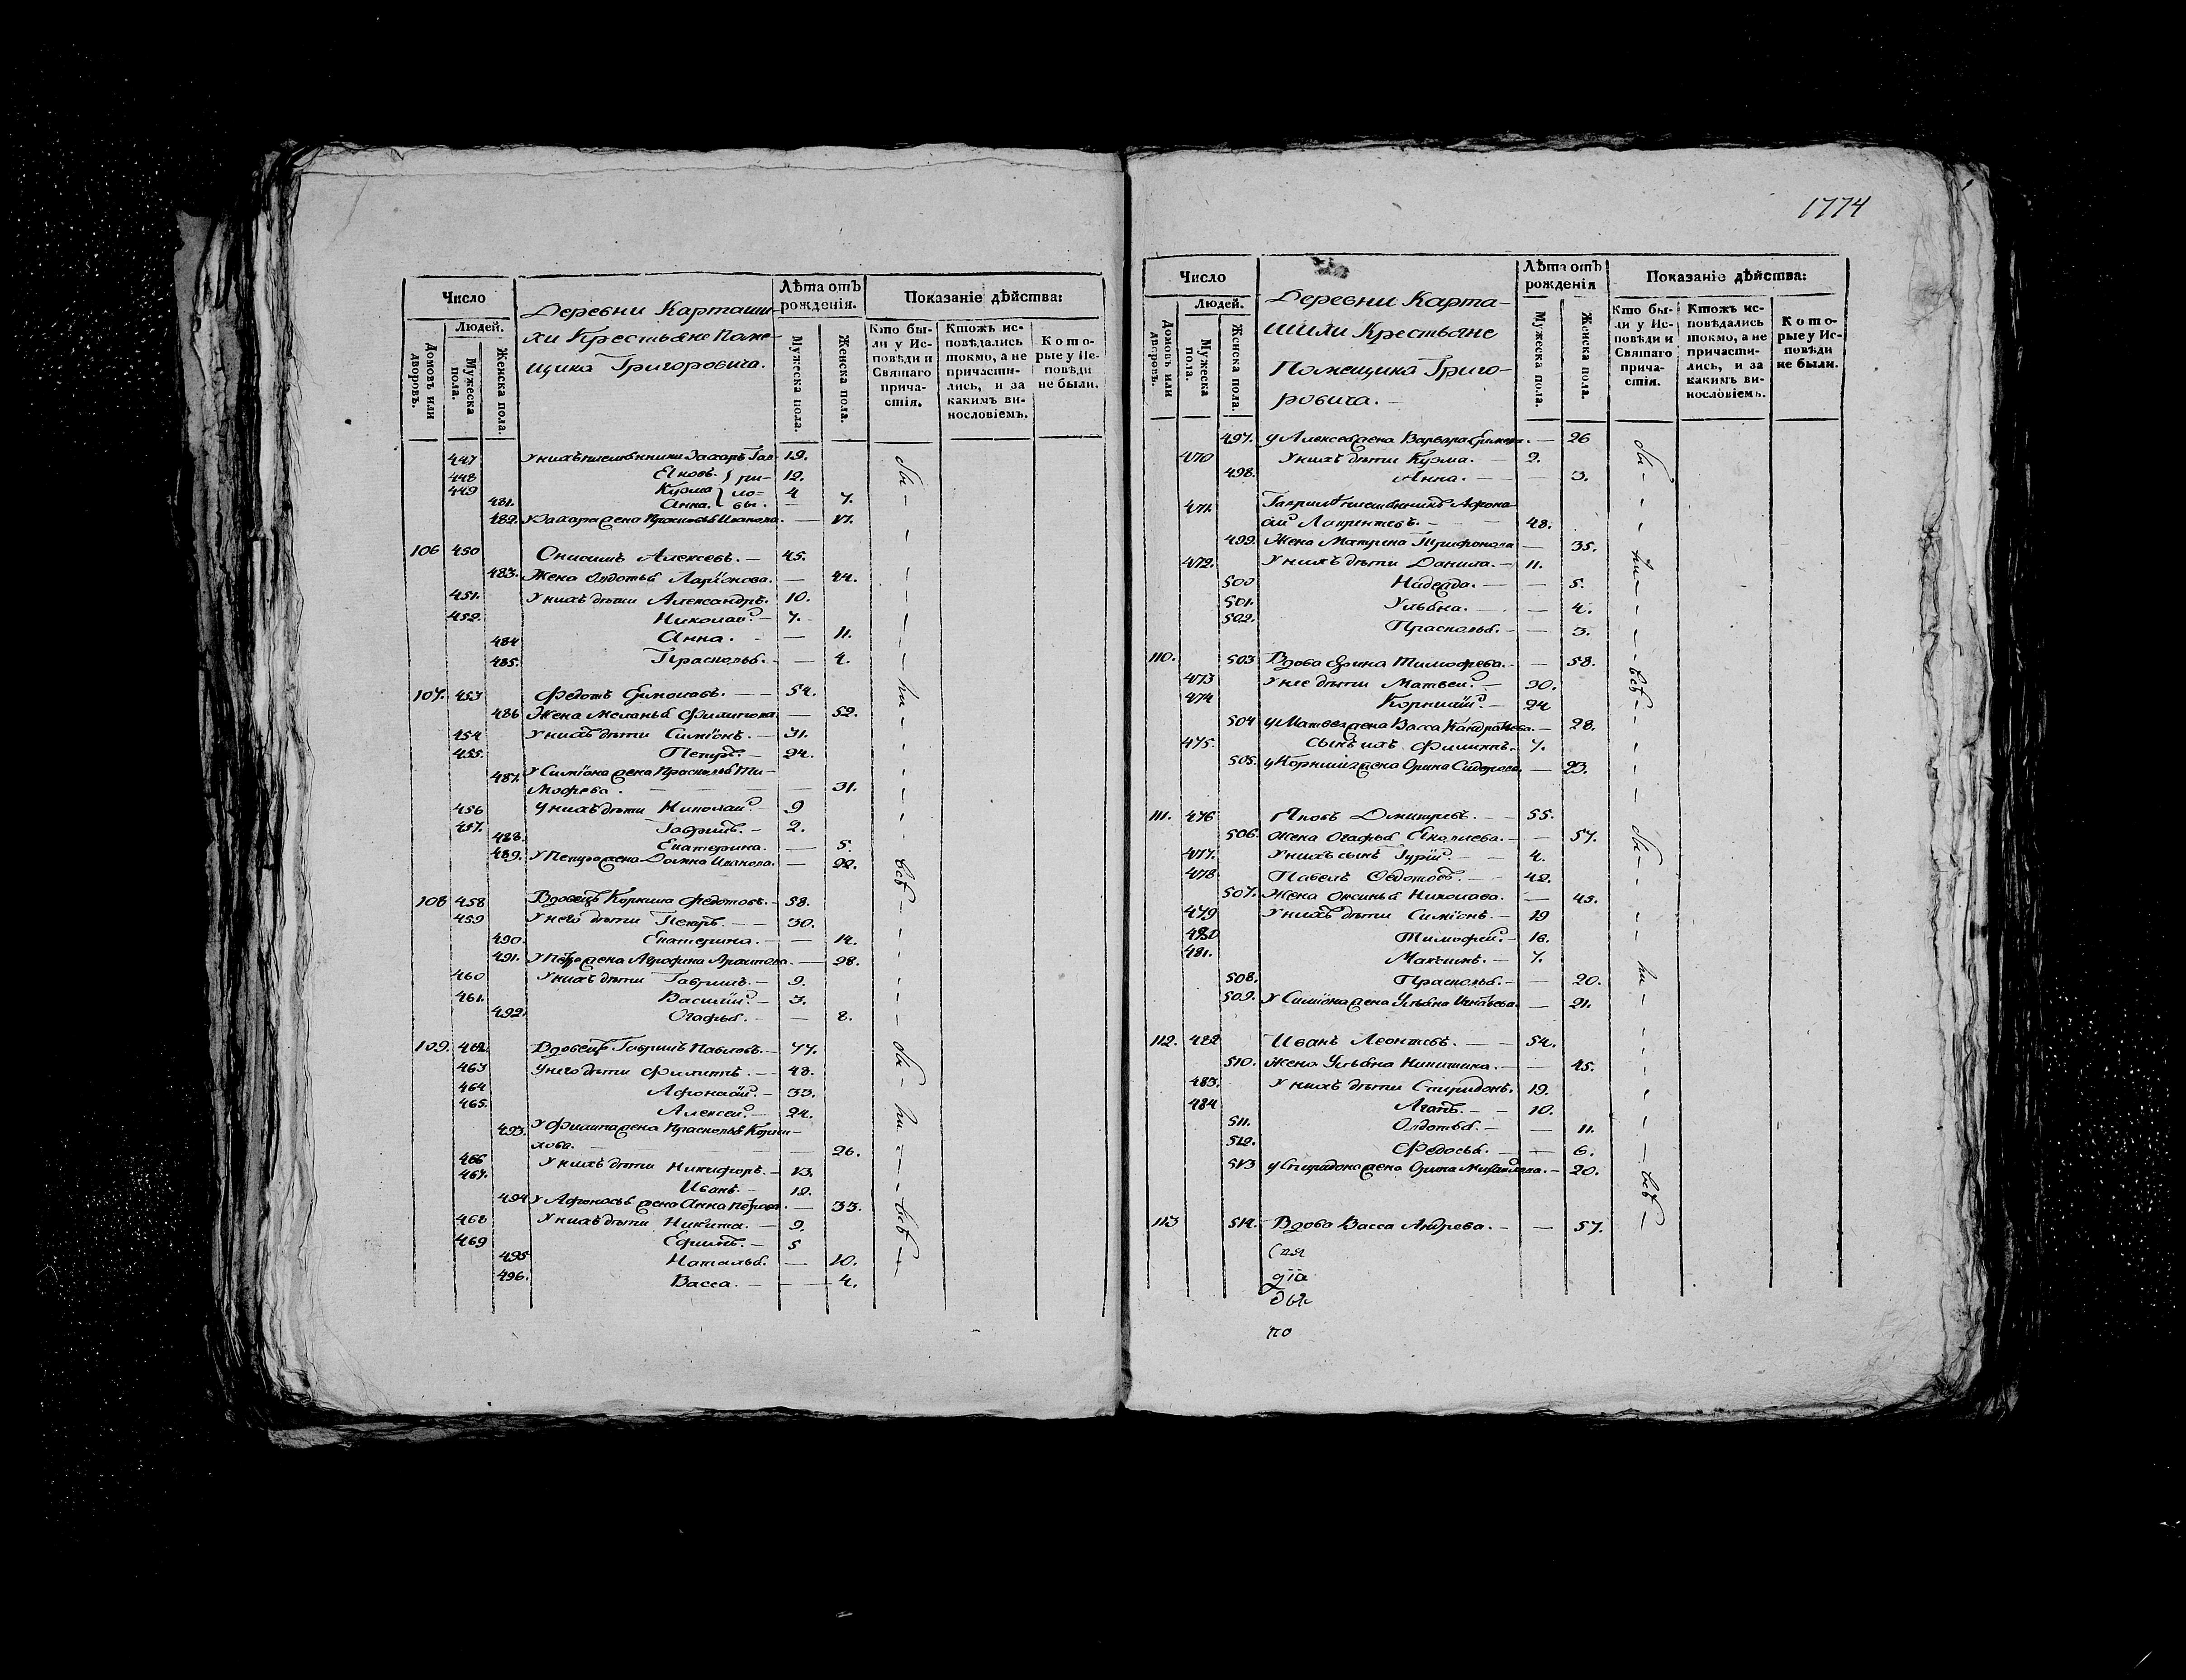 1774
Число
Людей.
Домовъ или дворовъ.
Мужеска пола.
Женска пола.
Деревни Карташи-
хи Крестьяне Поме-
щика Григоровича.
Лѣта отъ рожденія.
Мужеска пола.
Женска пола.
Показаніе дѣйства:
Кто бы-
ли у Ис-
повѣди и
Святаго
прича-
стія.
Ктожъ ис-
повѣдались
токмо, а не
причасти-
лись, и за
какимъ ви-
нословіемъ.
Кото-
рые у Ис-
повѣди
не были.
447 У нихъ племянники Захаръ Гав- 19.
448 Яковъ. ри- 12.
449 Кузма ло- 4
481. Анна. вы. — 7.
482. У Захара жена Прасковья Иванова. — 17.
106 450 Онисимъ Алексевъ. — 45.
483. Жена Овдотья Ларiонова. — 44.
451. У нихъ дѣти Александръ. 10.
452. Николай — 7.
484 Анна. — 11.
485. Прасковья. — 4.
107. 453 Федотъ — 54.
486 Жена Меланья Филипова. — 52.
454 У нихъ дѣти Симiонъ. — 31.
455. Петръ. — 24.
487. У Симiона жена Прасковья Ти-
мофева. — 31.
456 У нихъ дѣти Николай 9
457. Гаврилъ. — 2.
488. Екатерина. — 5.
489. У Петра жена Домна Иванова. — 22.
108 458 Вдовецъ Корнила Федотовъ. — 58.
459 У него дѣти Петръ. — 30.
490. Екатерина. — 14.
491. У Петра жена Агрофина — 28.
460 У нихъ дѣти Гаврилъ. — 9.
461. Василiй. — 3.
492. Огафья. — 8.
109. 462 Вдовецъ Гаврилъ Павловъ. — 77.
463 У него дѣти Филиппъ. — 48.
464 Афонасiй. — 33.
465. Алексей. — 24.
493. У Филипа жена Прасковья Корни-
лова. — 26.
466 У нихъ дѣти Никифоръ. — 13.
467. Иванъ. — 12.
494 У Афонасья жена Анна Петрова. — 33.
468 У нихъ дѣти Никита. — 9.
469 Ефимъ. — 5
495 Наталья. — 10.
496. Васса. — 4.
бы- ли всѣ бы- ли всѣ
Число
Людей.
Домовъ или дворовъ.
Мужеска пола.
Женска пола.
Деревни Карта-
шихи Крестьяне
Помещика Григо-
ровича. —
Лѣта отъ рожденія
Мужеска пола.
Женска пола.
Показаніе дѣйства:
Кто бы-
ли у Ис-
повѣди и
Святаго
прича-
стія.
Ктожъ ис-
повѣдались
токмо, а не
причасти-
лись, и за
какимъ ви-
нословіемъ.
Кото-
рые у Ис-
повѣди
не были.
497. У Алексея жена Варвара — 26
470 У нихъ дѣти Кузма. — 2.
498. Анна. — 3.
471. Гаврилы племянникъ Афона-
сiй Лаврентевъ. — 48.
499. Жена Матрена Трифонова — 35.
472. У нихъ дѣти Данила. — 11.
500 Надежда. — 5.
501. Ульяна. — 4.
502. Прасковья. — 3.
110. 503 Вдова Ирина Тимофева. — 58.
473 У нее дѣти Матвей. — 30.
474 Корнилiй. — 24
504 У Матвея жена Васса Кандратева. — 28.
475. Сынъ ихъ Филиппъ. 7.
505. У Корнилiя жена Орина Сидорова. — 23.
111. 476 Яковъ Дмитревъ. — 55.
506. Жена Огафья Яковлева. — 57.
477. У нихъ сынъ Гурiй. — 4.
478 Павелъ Федотовъ. — 42.
507. Жена Оксинья Николаева. — 45.
479 У нихъ дѣти Симiонъ. — 19
480 Тимофей. — 16.
481. Максимъ. — 7.
508. Прасковья. — 20.
509. У Симiона жена Ульяна Игнатьева. — 21.
112. 482 Иванъ Леонтевъ. — 54.
510. Жена Ульяна Никитина. — 45.
483. У нихъ дѣти Спиридонъ. 19.
484 Агапъ. — 10.
511. Овдотья. — 11.
512. Федосья. — 6.
513 У Спиридона жена Орина Михайлова. — 20.
113 514. Вдова Васса Андрева. — 57.
бы- ли всѣ бы- ли всѣ
дiа
по